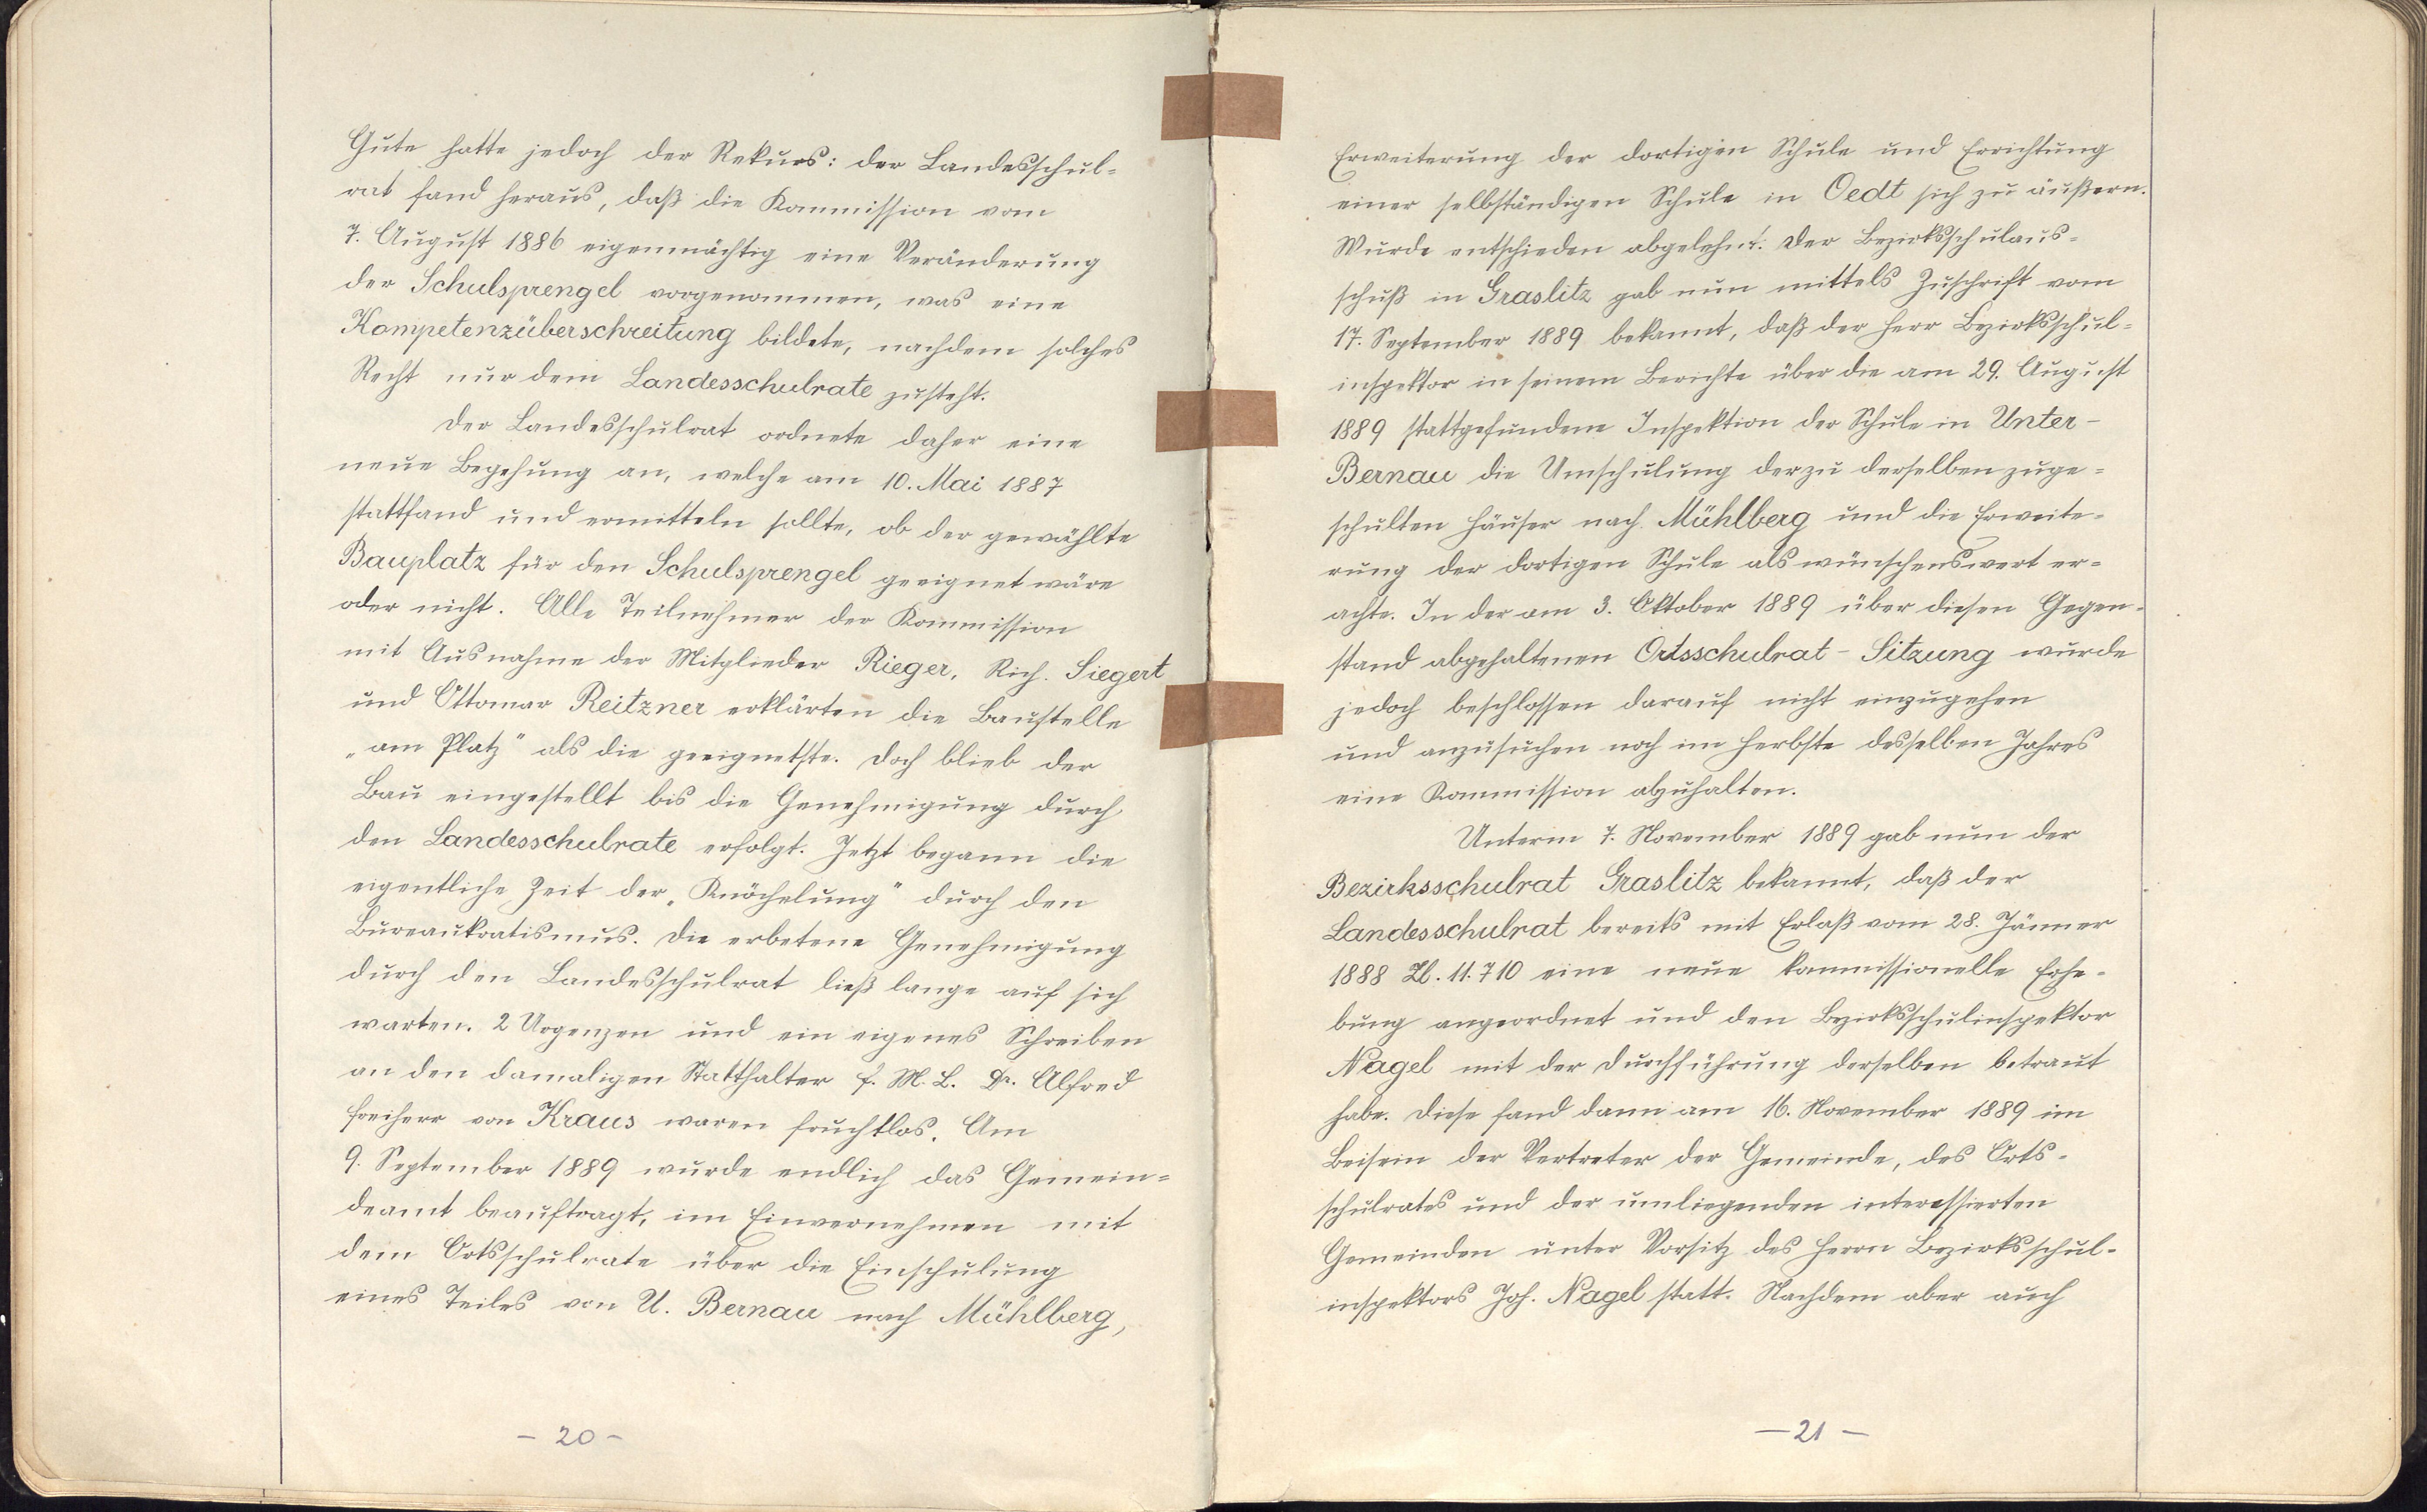 Gute hatte jedoch der Rekurs: der Landesschul-
rat fand heraus, daß die Kommission vom
7. August 1886 eigenmächtig eine Veränderung
der Schulsprengel vorgenommen, was eine
Kompetenzüberschreitung bildete, nachdem solches
Recht nur dem Landesschulrate zusteht.
Der Landesschulrat ordnete daher eine
neue Begehung an, welche am 10. Mai 1887
stattfand und ermitteln sollte, ob der gewählte
Bauplatz für den Schulsprengel geeignet wäre
oder nicht. Alle Teilnehmer der Kommission
mit Ausnahme der Mitglieder Rieger, Rich. Siegert
und Ottomar Reitzner erklärten die Baustelle
„am Platz" als die geeignetste. Doch blieb der
Bau eingestellt bis die Genehmigung durch
den Landesschulrate erfolgt. Jetzt begann die
eigentliche Zeit der „Knöchelung" durch den
Bureaukratismus. Die erbetene Genehmigung
durch den Landesschulrat ließ lange auf sich
warten. 2 Urgenzen und ein eigenes Schreiben
an den damaligen Statthalter F. M. L. Dr. Alfred
Freiherr von Kraus waren fruchtlos. Am
9. September 1889 wurde endlich das Gemein-
deamt beauftragt, im Einvernehmen mit
dem Ortsschulrate über die Einschulung
eines Teiles von U. Bernau nach Mühlberg,
- 20 -
Erweiterung der dortigen Schule und Errichtung
einer selbständigen Schule in Oedt sich zu äußern.
Wurde entschieden abgelehnt. Der Bezirksschulaus-
schuß in Graslitz gab nun mittels Zuschrift vom
17. September 1889 bekannt, daß der Herr Bezirksschul-
inspektor in seinem Berichte über die am 29. August
1889 stattgefundene Inspektion der Schule in Unter-
Bernau die Umschulung der zu derselben zuge-
schulten Häuser nach Mühlberg und die Erweite-
rung der dortigen Schule als wünschenswert er-
achte. In der am 3. Oktober 1889 über diesen Gegen-
stand abgehaltenen Ortsschulrat-Sitzung wurde
jedoch beschlossen darauf nicht einzugehen
und anzusuchen noch im Herbste desselben Jahres
eine Kommission abzuhalten.
Unterm 7. November 1889 gab nun der
Bezirksschulrat Graslitz bekannt, daß der
Landesschulrat bereits mit Erlaß vom 28. Jänner
1888 Zl. 11.710 eine neue kommissionelle Erhe-
bung angeordnet und den Bezirksschulinspektor
Nagel mit der Durchführung derselben betraut
habe. Diese fand dann am 16. November 1889 im
Beisein der Vertreter der Gemeinde, des Orts-
schulrates und der umliegenden interessierten
Gemeinden unter Vorsitz des Herrn Bezirksschul-
inspektors Joh. Nagel statt. Nachdem aber auch
- 21 -